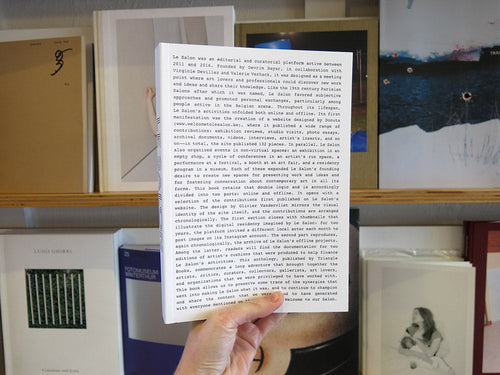 Le Salon was an editorial and curatorial platform active between
2011 and 2016. Founded by Devrim Bayar, in collaboration with
Virginie Devillez and Valerie Verhack, it was designed as a meeting
point where art lovers and professionals could discover new work
and ideas and share their knowledge. Like the 19th century Parisian
Salons after which it was named, Le Salon favored subjective
approaches and promoted personal exchanges, particularly among
people active in the Belgian scene. Throughout its lifespan,
Le Salon's activities unfolded both online and offline. Its first
manifestation was the creation of a website designed by Donuts
(www.welcometolesalon.be), where it published a wide range of
contributions: exhibition reviews, studio visits, photo essays,
archival documents, videos, interviews, artist's inserts, and so
on—in total, the site published 132 pieces. In parallel, Le Salon
also organized events in non-virtual spaces: an exhibition in an
empty shop, a cycle of conferences in an artist's run space, a
performance at a festival, a booth at an art fair, and a residency
program in a museum. Each of these expanded Le Salon's founding
desire to create new spaces for presenting work and ideas and
for fostering conversation about contemporary art in all its
forms. This book retains that double logic and is accordingly
divided into two parts: online and offline. It opens with a
selection of the contributions first published on Le Salon's
website. The design by Olivier Vandervliet mirrors the visual
identity of the site itself, and the contributions are arranged
chronologically. The first section closes with thumbnails that
illustrate the digital residency imagined by Le Salon: for two
years, the platform invited a different local actor each month to
post images on its Instagram account. The second part reproduces,
again chronologically, the archive of Le Salon's offline projects.
Among the latter, readers will find the documentation for two
editions of artist's cushions that were produced to help finance
Le Salon's activities. This anthology, published by Triangle
Books, commemorates a long adventure that brought together the
artists, critics, curators, collectors, galleries, art lovers,
and organizations that we were privileged to have worked with.
this book allows us to preserve some trace of the synergies that
went into making Le Salon what it was, and to continue to champion
and share the content that we were to have generated
with everyone mentioned on Welcome to our Salon.
LUIGI GHIRRI
FOTOMUSEUM
WINTERTHUR